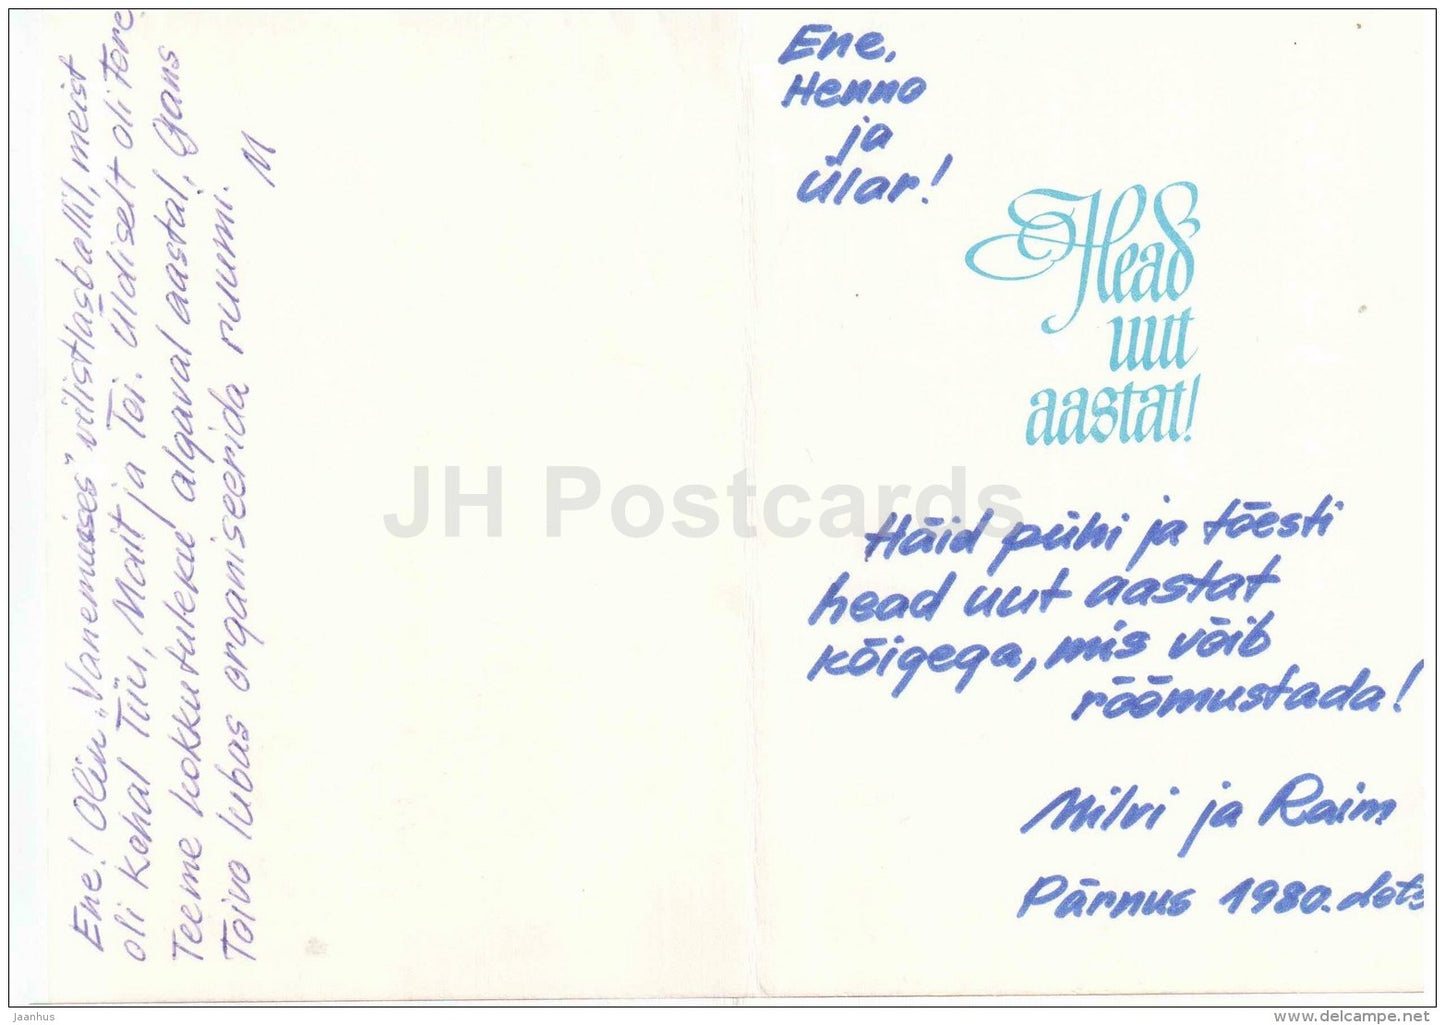 Ene! Olin „Vanemuises" vilistlasballil, meist
oli kohal Tiiu, Mait ja Toi. Üldiselt oli tore.
Teeme kokkutuleku algaval aastal,
Toivo lubas organiseerida ruumi.
M
Ene,
Henno
ja
Ülar!
Head
uut
aastat!
Häid pühi ja tõesti
head uut aastat
kõigega, mis võib
rõõmustada!
Milvi ja Raim
Pärnus 1980. dets
JH Postcards
Jaanhus
www.delcampe.net